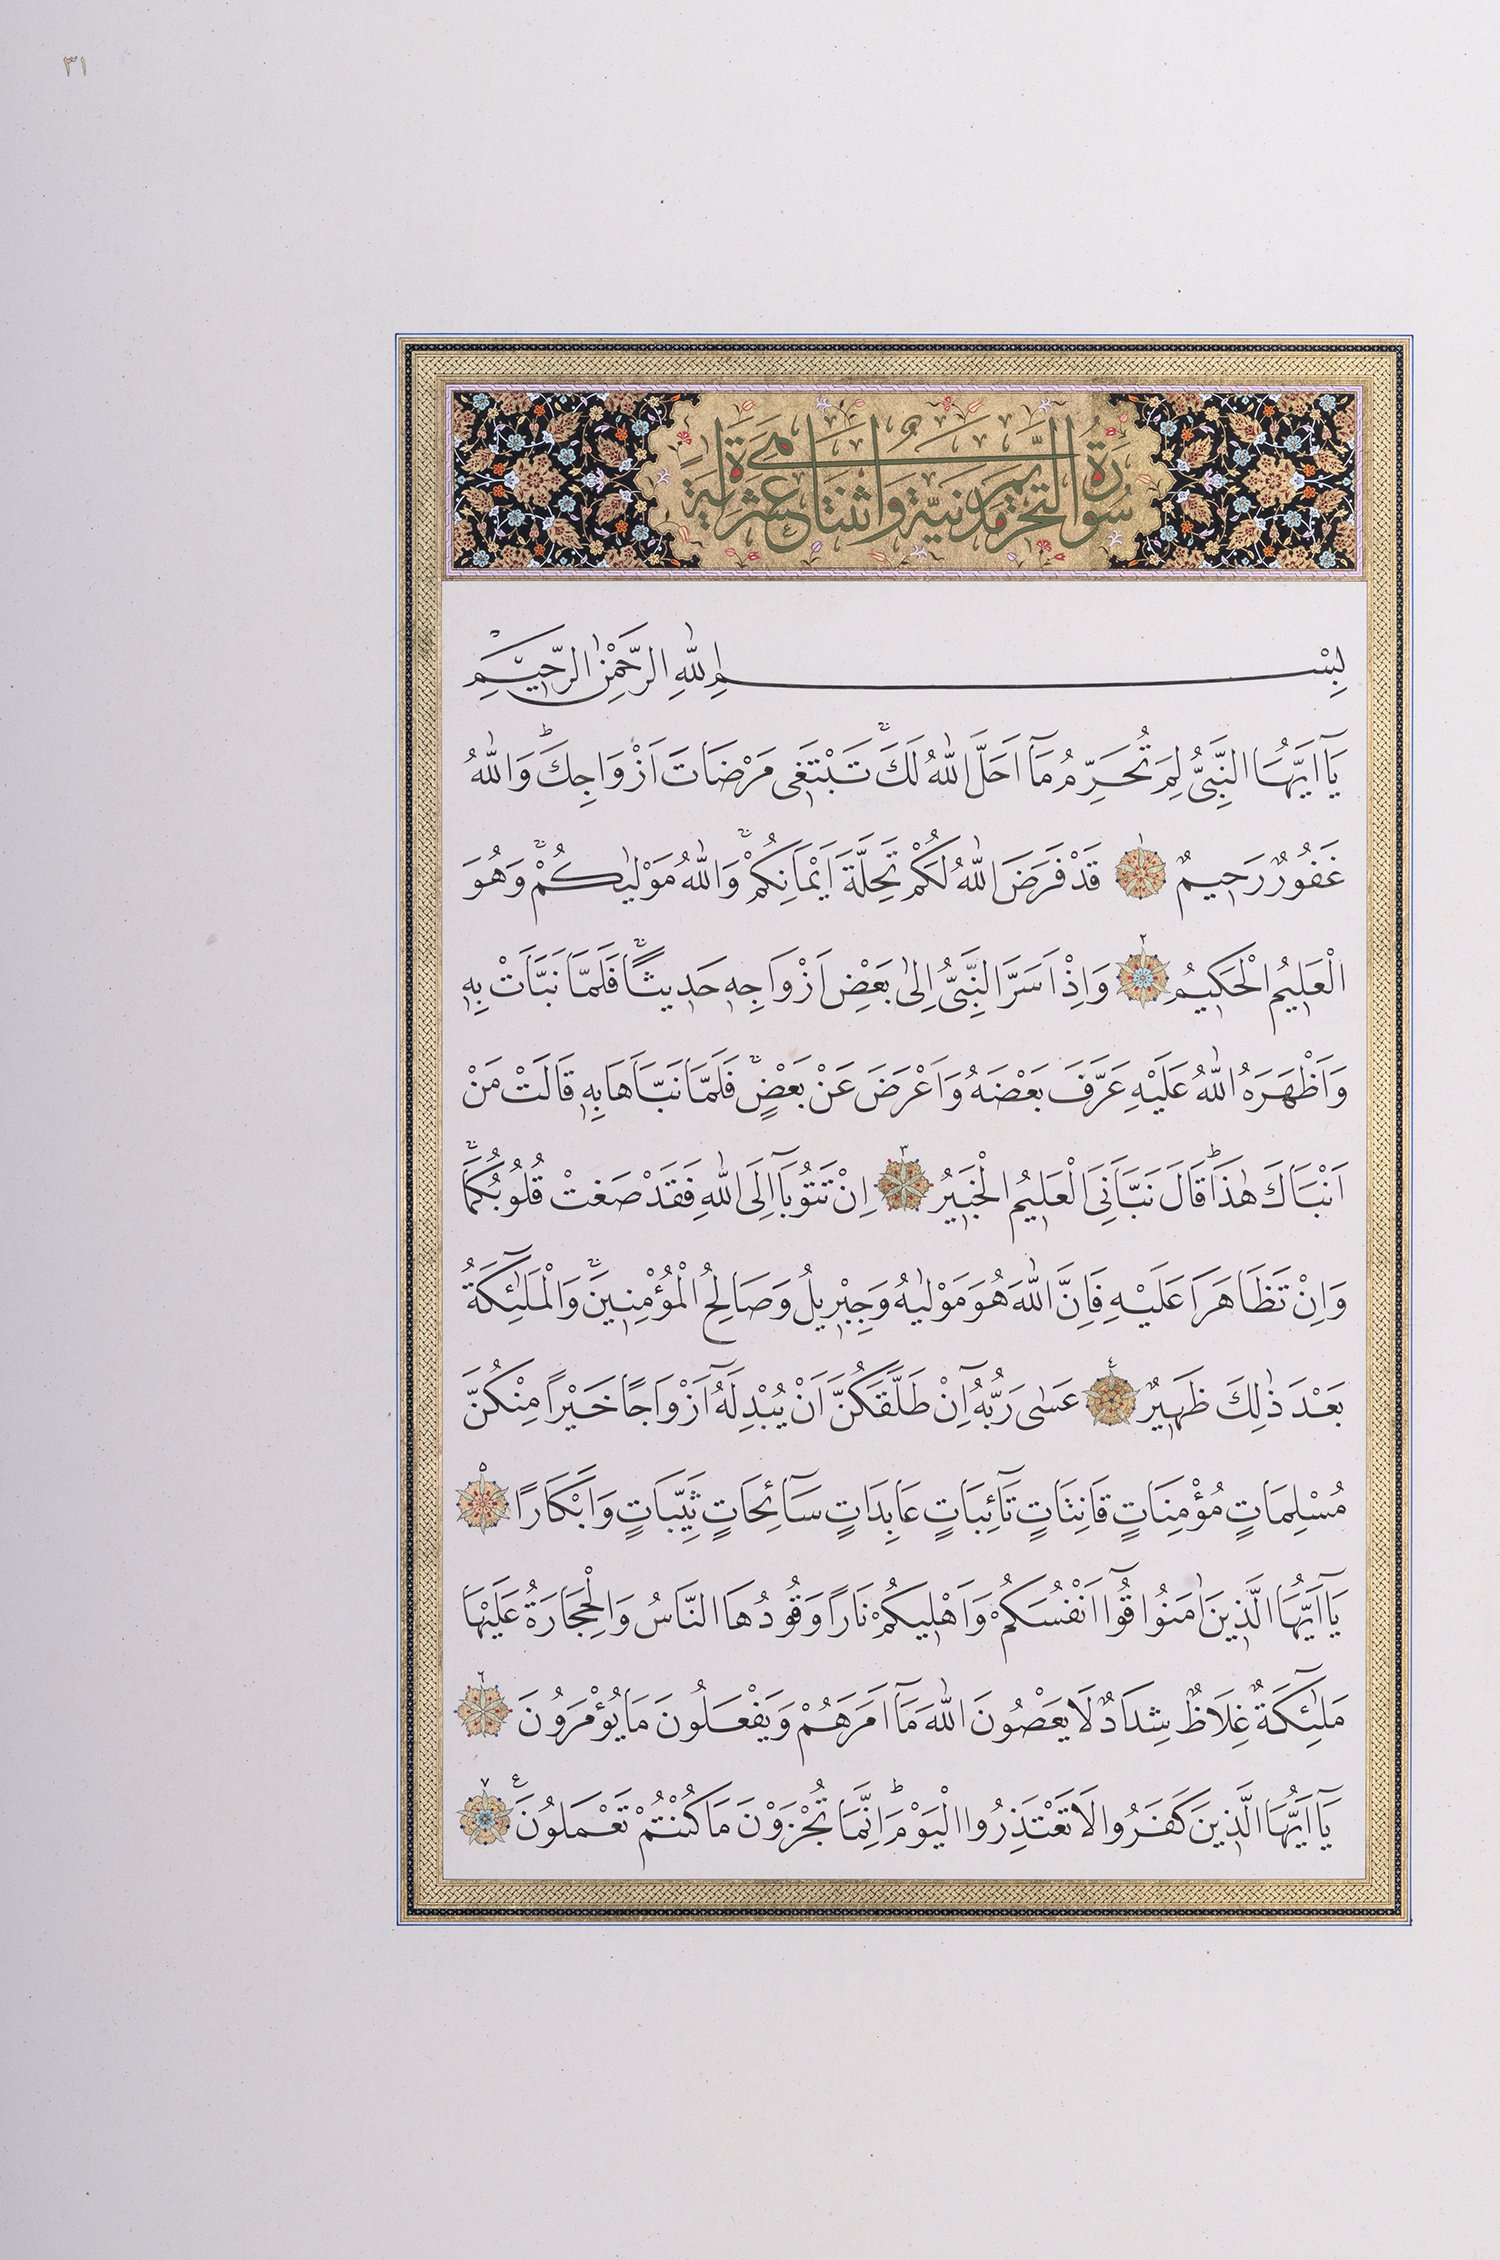 ٣١
سُورَةُ التَّحْرِيمِ مَدَنِيَّةٌ وَاثْنَتَا عَشْرَةَ اٰيَةً
بِسْمِ اللّٰهِ الرَّحْمٰنِ الرَّحِيمِ
يَٓا اَيُّهَا النَّبِيُّ لِمَ تُحَرِّمُ مَٓا اَحَلَّ اللّٰهُ لَكَۚ تَبْتَغِي مَرْضَاتَ اَزْوَاجِكَۜ وَاللّٰهُ
غَفُورٌ رَحِيمٌ ١ قَدْ فَرَضَ اللّٰهُ لَكُمْ تَحِلَّةَ اَيْمَانِكُمْۚ وَاللّٰهُ مَوْلٰيكُمْۚ وَهُوَ
الْعَلِيمُ الْحَكِيمُ ٢ وَاِذْ اَسَرَّ النَّبِيُّ اِلٰى بَعْضِ اَزْوَاجِهِ حَدِيثًاۚ فَلَمَّا نَبَّاَتْ بِهِ
وَاَظْهَرَهُ اللّٰهُ عَلَيْهِ عَرَّفَ بَعْضَهُ وَاَعْرَضَ عَنْ بَعْضٍۚ فَلَمَّا نَبَّاَهَا بِهِ قَالَتْ مَنْ
اَنْبَاَكَ هٰذَاۜ قَالَ نَبَّاَنِيَ الْعَلِيمُ الْخَبِيرُ ٣ اِنْ تَتُوبَٓا اِلَى اللّٰهِ فَقَدْ صَغَتْ قُلُوبُكُمَاۚ
وَاِنْ تَظَاهَرَا عَلَيْهِ فَاِنَّ اللّٰهَ هُوَ مَوْلٰيهُ وَجِبْرِيلُ وَصَالِحُ الْمُؤْمِنِينَۚ وَالْمَلٰٓئِكَةُ
بَعْدَ ذٰلِكَ ظَهِيرٌ ٤ عَسٰى رَبُّهُٓ اِنْ طَلَّقَكُنَّ اَنْ يُبْدِلَهُٓ اَزْوَاجًا خَيْرًا مِنْكُنَّ
مُسْلِمَاتٍ مُؤْمِنَاتٍ قَانِتَاتٍ تَٓائِبَاتٍ عَابِدَاتٍ سَٓائِحَاتٍ ثَيِّبَاتٍ وَاَبْكَارًا ٥
يَٓا اَيُّهَا الَّذِينَ اٰمَنُوا قُٓوا اَنْفُسَكُمْ وَاَهْلِيكُمْ نَارًا وَقُودُهَا النَّاسُ وَالْحِجَارَةُ عَلَيْهَا
مَلٰٓئِكَةٌ غِلَاظٌ شِدَادٌ لَا يَعْصُونَ اللّٰهَ مَٓا اَمَرَهُمْ وَيَفْعَلُونَ مَا يُؤْمَرُونَ ٦
يَٓا اَيُّهَا الَّذِينَ كَفَرُوا لَا تَعْتَذِرُوا الْيَوْمَۜ اِنَّمَا تُجْزَوْنَ مَا كُنْتُمْ تَعْمَلُونَ ع ٧